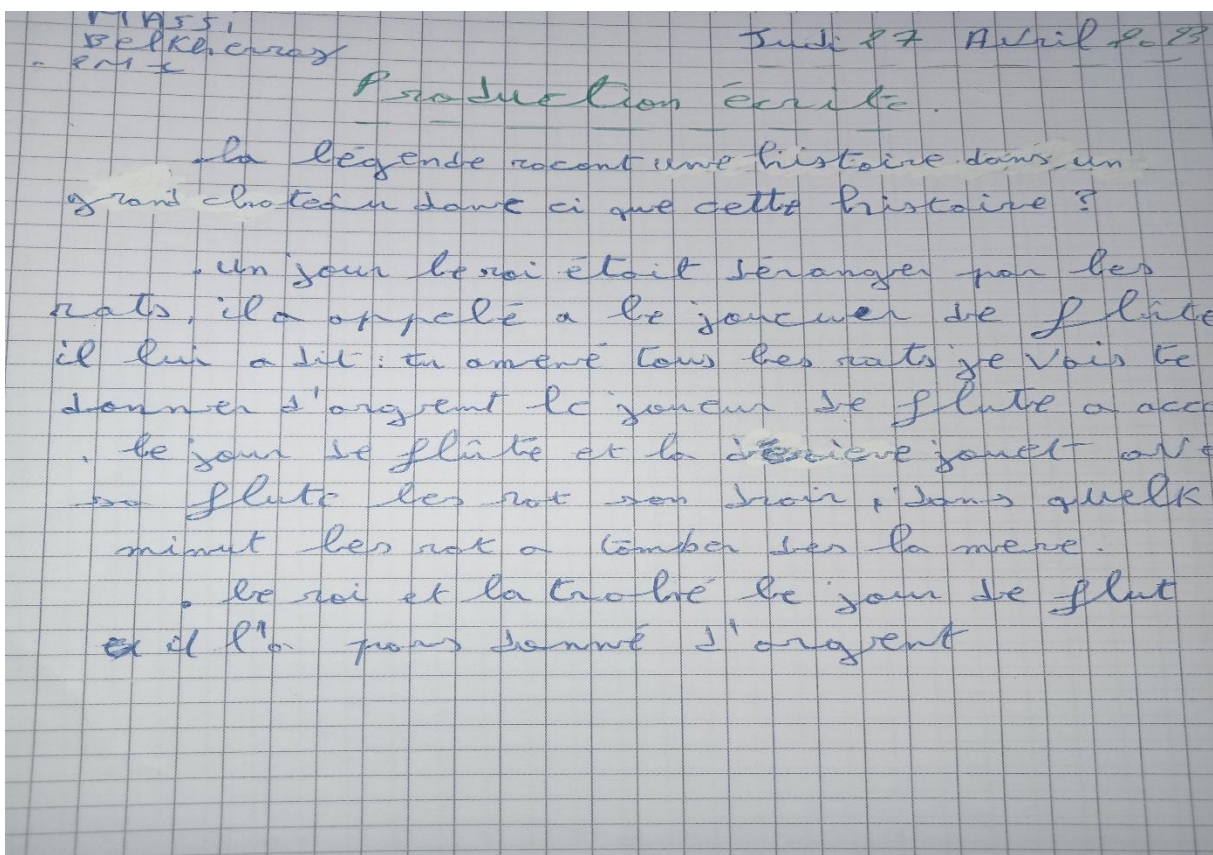 MASSI
Belkhenray Judi 27 Avril 2023
Production écrite.
la légende racont une histoire dans un
grand chateau donc ci que cette histoire ?
un jour le roi était déranger par les
rats, il a appelé a le joucuer de flûte
il lui a dit : tu amené tous les rats je vais te
donner d'argent le joueur de flute a acce
. le jour de flûte et la derière jouet ave
sa flute les rat son droir, dans quelk
minut les rat a tomber des la mere.
. le roi et la trobé le jour de flut
il l'a pas donné d'argent